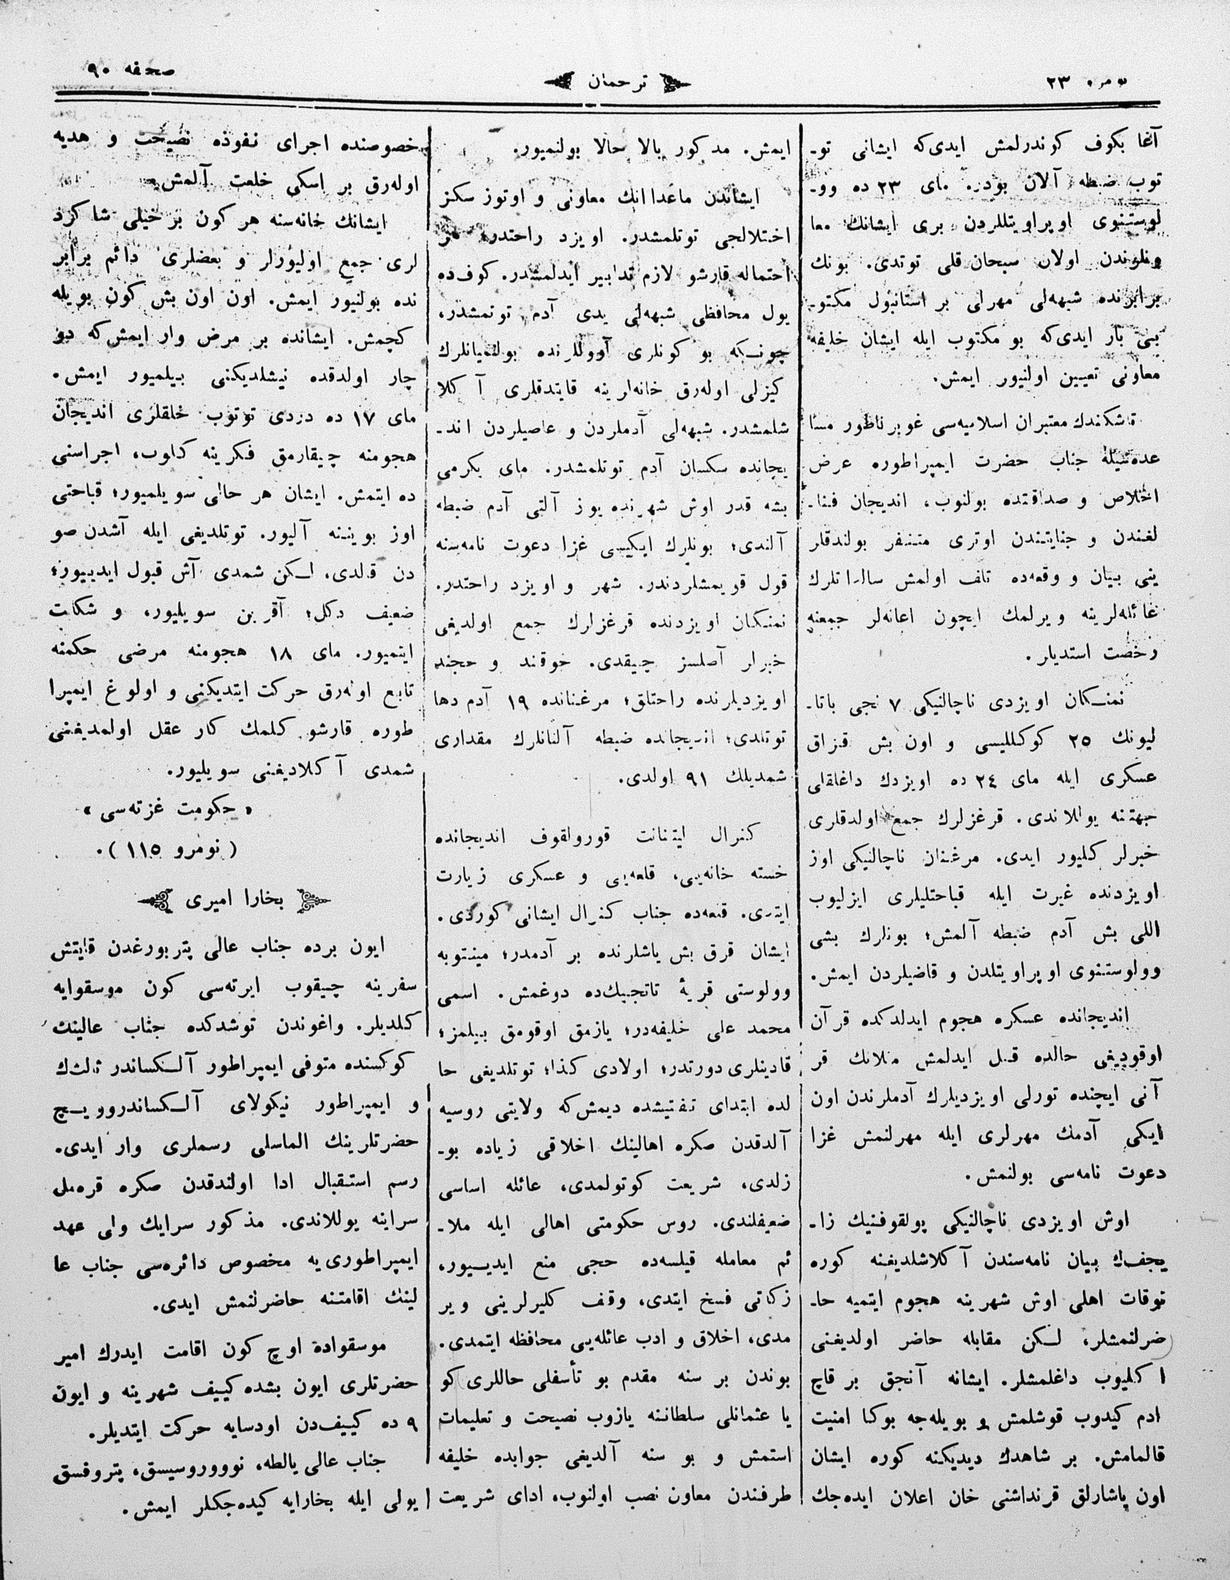 نومرو ٢٣
ترجمان
صحفه ٩٠
آغا بكوف كوندرلمش ايدى‌كه ايشانى تو-
توب ضبطه آلان بودر. ماى ٢٣ ده وو-
لوستنوى اوپراويتللردن برى ايشانك معا
ونلرندن اولان سبحان قلى توتدى. بونك
برابرنده شبهه‌لى مهرلى بر استانبول مكتو-
بى بار ايدى‌كه بو مكتوب ايله ايشان خليفه
معاونى تعيين اولنيور ايمش.
تاشكندك معتبران اسلاميه‌سى غوبرناطور مسا
عده‌سيله جناب حضرت ايمپراطوره عرض
اخلاص و صداقتده بولنوب، انديجان فنا-
لغندن و جنايتندن اوترى متنفر بولندقلر
ينى بيان و وقعه‌ده تلف اولمش سالداتلرك
عائله‌لرينه ويرلمك ايچون اعانه‌لر جمعنه
رخصت استديلر.
نمنــكان اويزدى ناچالنيكى ٧ نجى باتا-
ليونك ٢٥ كوكلليسى و اون بش قزاق
عسكرى ايله ماى ٢٤ ده اويزدك داغلقلى
جهتنه يوللاندى. قرغزلرك جمع اولدقلرى
خبرلر كليور ايدى. مرغنان ناچالنيكى اوز
اويزدنده غيرت ايله قباحتليلرى ايزليوب
اللى بش آدم ضبطه آلمش؛ بونلرك بشى
وولوستنوى اوپراويتلدن و قاضيلردن ايمش.
انديجانده عسكره هجوم ايدلدكده قرآن
اوقوديغى حالده قتل ايدلمش ملانك قر
آنى ايچنده تورلى اويزديلرك آدملرندن اون
ايكى آدمك مهرلرى ايله مهرلنمش غزا
دعوت نامه‌سى بولنمش.
اوش اويزدى ناچالنيكى پولقوفنيك زا-
يجفك بيان نامه‌سندن آكلاشلديغنه كوره
توقات اهلى اوش شهرينه هجوم ايتميه حا-
ضرلنمشلر، لــكن مقابله حاضر اولديغنى
اكليوب داغلمشلر. ايشانه آنجق بر قاچ
ادم كيدوب قوشلمش و بويله‌جه بوكا امنيت
قالمامش. بر شاهدك ديديكنه كوره ايشان
اون پاشارلق قرنداشنى خان اعلان ايده‌جك
ايمش. مذكور بالا حالا بولنميور.
ايشاندن ماعدا انك معاونى و اوتوز سكز
اختلالجى توتلمشدر. اويزد راحتدر؛ هر
احتماله قارشو لازم تدابير ايدلمشدر. كوفه‌ده
يول محافظى شبهه‌لى يدى آدم توتمشدر،
چونــكه بو كونلرى آووللرنده بولنميانلرك
كيزلى اوله‌رق خانه‌لرينه قايتدقلرى آكلا
شلمشدر. شبهه‌لى آدملردن و عاصيلردن اند-
يجانده سكسان آدم توتلمشدر. ماى يكرمى
بشه قدر اوش شهرنده يوز آلتى آدم ضبطه
آلندى؛ بونلرك ايكيسى غزا دعوت نامه‌سنه
قول قويمشلردندر. شهر و اويزد راحتدر.
نمنــكان اويزدنده قرغزلرك جمع اولديغى
خبرلر آصلسز چيقدى. خوقند و حجند
اويزديلرنده راحتلق؛ مرغنانده ١٩ آدم دها
توتلدى؛ انديجانده ضبطه آلنانلرك مقدارى
شمديلك ٩١ اولدى.
كنرال ليتنانت قورولقوف انديجانده
خسته خانه‌يى، قلعه‌يى و عسكرى زيارت
ايتدى. قلعه‌ده جناب كنرال ايشانى كوردى.
ايشان قرق بش ياشلرنده بر آدمدر؛ مينتوبه
وولوستى قريهٔ تاتجيك‌ده دوغمش. اسمى
محمد على خليفه‌در؛ يازمق اوقومق بيلمز؛
قادينلرى دورتدر؛ اولادى كذا؛ توتلديغى حا
لده ابتداى تفتيشده ديمش‌كه ولايتى روسيه
آلدقدن صكره اهالينك اخلاقى زياده بو-
زلدى، شريعت كوتولمدى، عائله اساسى
ضعيفلندى. روس حكومتى اهالى ايله ملا-
ئم معامله قيلسه‌ده حجى منع ايديــيور،
زكاتى فسخ ايتدى، وقف كليرلرينى وير
مدى، اخلاق و ادب عائله‌يى محافظه ايتمدى.
بوندن بر سنه مقدم بو تأسفلى حاللرى كو
يا عثمانلى سلطاننه يازوب نصيحت و تعليمات
استمش و بو سنه آلديغى جوابده خليفه
طرفندن معاون نصب اولنوب، اداى شريعت
خصوصنده اجراى نفوذه نصيحت و هديه
اوله‌رق بر اسكى خلعت آلمش.
ايشانك خانه‌سنه هر كون بر خيلى شاكرد
لرى جمع اوليورلر و بعضلرى دائم برابر
نده بولنيور ايمش. اون اون بش كون بويله
كچمش. ايشانده بر مرض وار ايمش‌كه دو
چار اولدقده نيشلديكنى بيلميور ايمش.
ماى ١٧ ده دردى توتوب خلقلرى انديجان
هجومنه چيقارمق فكرينه كلوب، اجراسنى
ده ايتمش. ايشان هر حالى سويلميور؛ قباحتى
اوز بويننه آليور. توتلديغى ايله آشدن صو
دن قالدى، لــكن شمدى آش قبول ايدييور؛
ضعيف دكل؛ آقرين سويليور، و شكايت
ايتميور. ماى ١٨ هجومنه مرضى حكمنه
تابع اوله‌رق حركت ايتديكنى و اولوغ ايمپرا
طوره قارشو كلمك كار عقل اولمديغنى
شمدى آكلاديغنى سويليور.
« حكومت غزته‌سى »
(نومرو ١١٥).
بخارا اميرى
ايون برده جناب عالى پتربورغدن قايتش
سفرينه چيقوب ايرته‌سى كون موسقوايه
كلديلر. واغوندن توشدكده جناب عالينك
كوكسنده متوفى ايمپراطور آلــكساندر ثالثك
و ايمپراطور نيكولاى آلــكساندروويــچ
حضرتلرينك الماسلى رسملرى وار ايدى.
رسم استقبال ادا اولندقدن صكره قره‌مل
سراينه يوللاندى. مذكور سرايك ولى عهد
ايمپراطورى‌يه مخصوص دائره‌سى جناب عا
لينك اقامتنه حاضرلنمش ايدى.
موسقواده اوچ كون اقامت ايدرك امير
حضرتلرى ايون بشده كييف شهرينه و ايون
٩ ده كييف‌دن اودسايه حركت ايتديلر.
جناب عالى يالطه، نوووروسيسق، پتروفسق
يولى ايله بخارايه كيده‌جكلر ايمش.